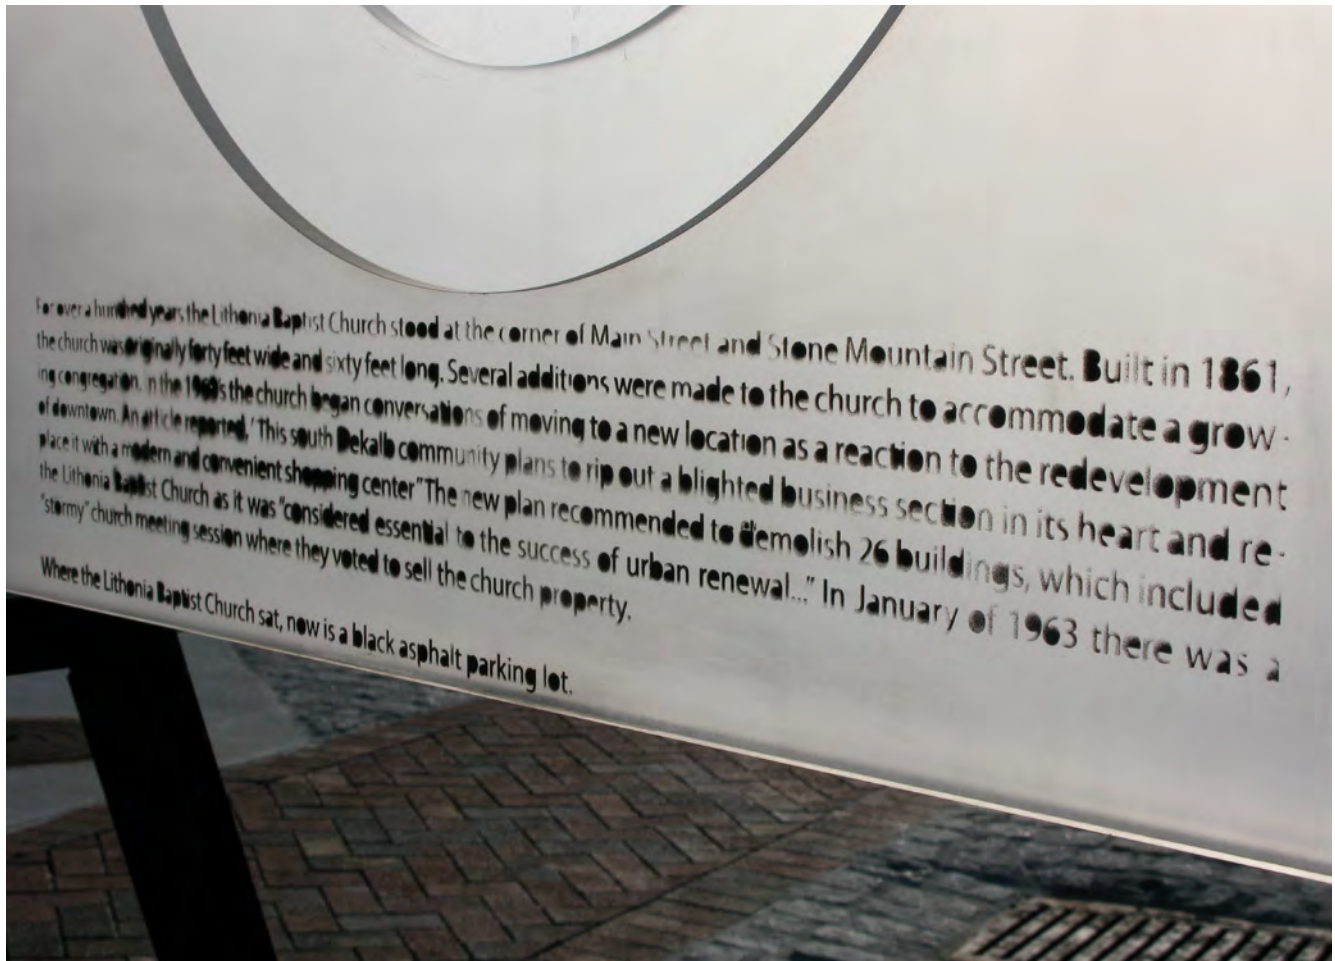 For over a hundred years the Lithonia Baptist Church stood at the corner of Main Street and Stone Mountain Street. Built in 1861,
the church was originally forty feet wide and sixty feet long. Several additions were made to the church to accommodate a grow-
ing congregation. In the 1960s the church began conversations of moving to a new location as a reaction to the redevelopment
of downtown. An article reported, "This south Dekalb community plans to rip out a blighted business section in its heart and re-
place it with a modern and convenient shopping center" The new plan recommended to demolish 26 buildings, which included
the Lithonia Baptist Church as it was "considered essential to the success of urban renewal..." In January of 1963 there was a
"stormy" church meeting session where they voted to sell the church property.
Where the Lithonia Baptist Church sat, now is a black asphalt parking lot.